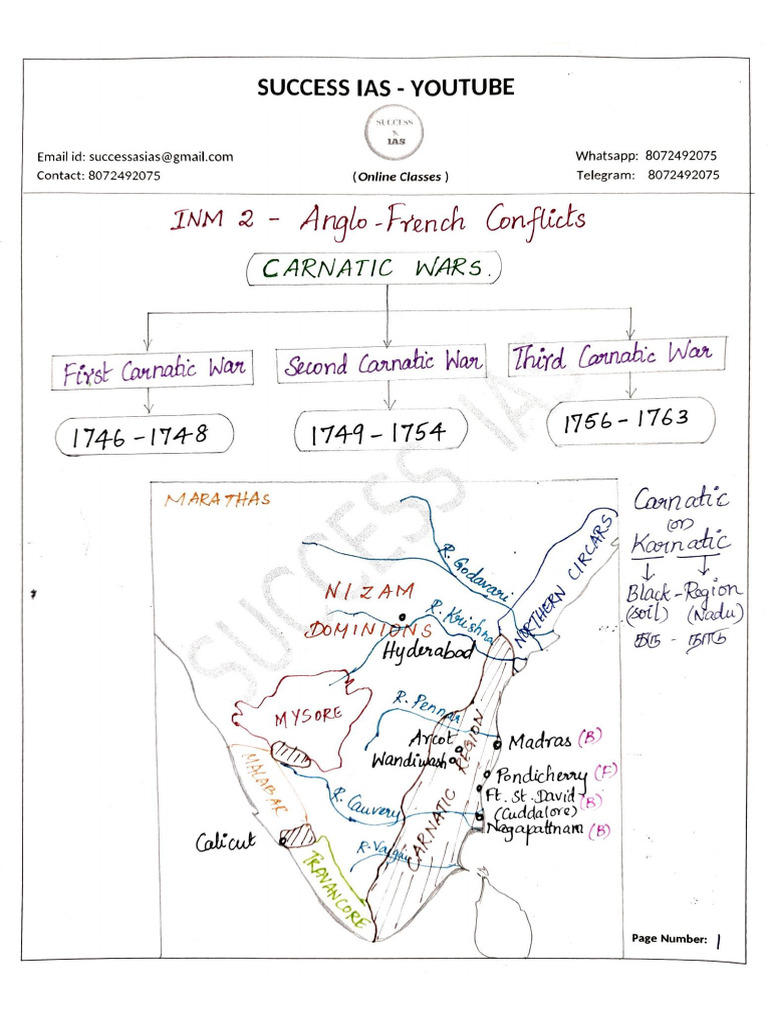 SUCCESS IAS - YOUTUBE
SUCCESS
IAS
Email id: successasias@gmail.com
Whatsapp: 8072492075
Contact: 8072492075
(Online Classes )
Telegram: 8072492075
INM 2 - Anglo-French Conflicts
CARNATIC WARS.
First Carnatic War
Second Carnatic War
Third Carnatic War
1746-1748
1749-1754
1756-1763
SUCCESS IAS
MARATHAS
Carnatic
(or)
Karnatic
Black-Region
(soil) (Nadu)
கரு - நாடு
R. Godavari
NORTHERN CIRCARS
NIZAM
DOMINIONS
R. Krishna
Hyderabad
MYSORE
R. Pennar
Arcot
Wandiwash
CARNATIC REGION
Madras (B)
Pondicherry (F)
Ft. St. David (B)
(Cuddalore)
Nagapattnam (B)
MALABAR
R. Cauvery
Calicut
R. Vaighai
TRAVANCORE
Page Number: 1